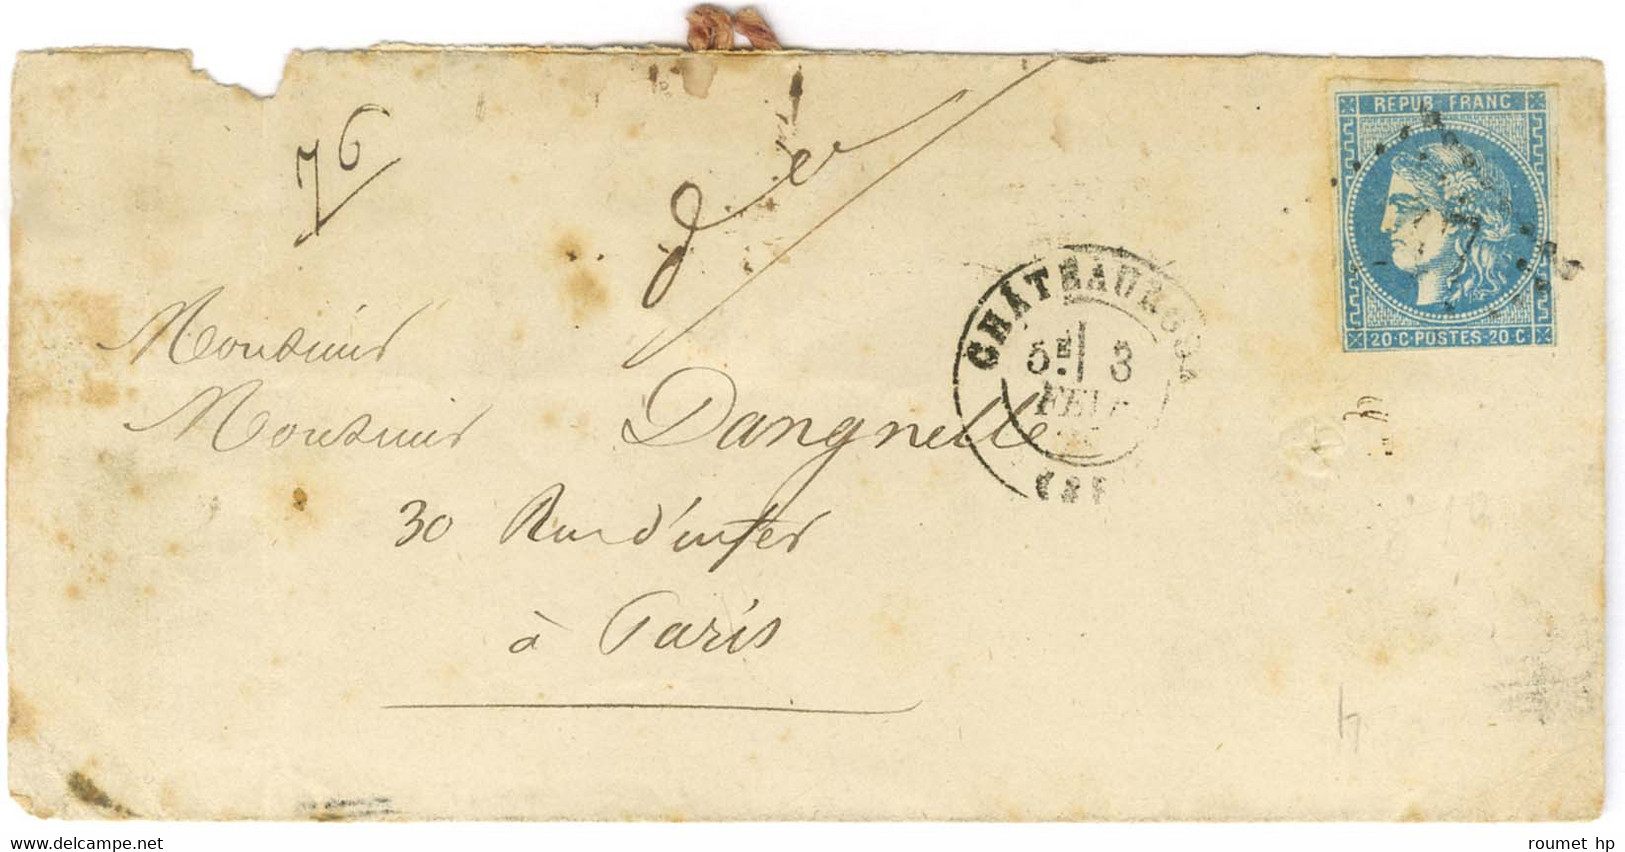 76
REPUB FRANC
20·C·POSTES·20·C
CHÂTEAUROUX
5E 3
FEVR
Monsieur
Monsieur Dangnelle
30 Rue d'enfer
à Paris
4
roumet hp